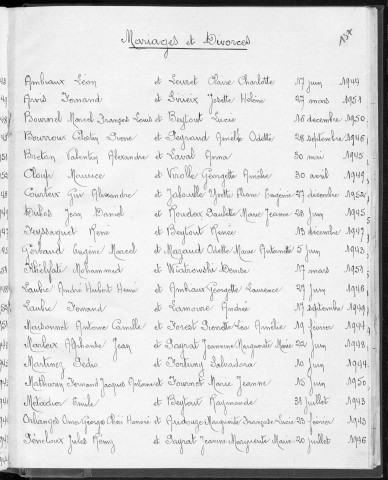 137
Mariages et Divorces
Ambiaux Léon et Leuret Claire Charlotte 17 juin 1944
Arvis Fernand et Lirieix Josette Hélène 27 mars 1951
Bournel Marcel François Louis et Beyfout Lucie 16 décembre 1950
Bourroux Célestin Pierre et Peyraud Amélie Odette 28 septembre 1946
Breton Valentin Alexandre et Laval Anna 30 mai 1945
Maurice et Virolle Georgette Amélie 30 avril 1949
Couvieix Guy Alexandre et Jabouille Yvette Eugénie 27 décembre 1952
Dubas Jean Daniel et Roudoux Paulette Marie Jeanne 28 juin 1945
Feyssaguet René et Beyfout Renée 13 décembre 1947
Gorbaud Eugène Marcel et Mazaud Odette Marie Antoinette 5 juin 1943
Khelfati Mohammed et Wiatrowski Denise 17 mars 1951
Laubre André Hubert Henri et Ambiaux Georgette Laurence 27 juin 1946
Laubre Fernand et Lamoure Andrée 17 septembre 1949
Maisonnet Antoine Camille et Forest Pierrette Léa Amélie 19 février 1944
Alphonse Jean et Pagrat Jeannine Marguerite Marie 22 juin 1949
Martinez Pédro et Fortuny Salvadora 10 juin 1944
Mathurin Fernand Jacques Antoine et Fournet Marie Jeanne 15 juin 1950
Métadier Emile et Beyfout Raymonde 31 juillet 1943
Omer Georges Honoré et Marguerite Françoise Lucie 23 février 1943
Péneloux Jules Rémy et Pagrat Jeanne Marguerite Marie 20 juillet 1946